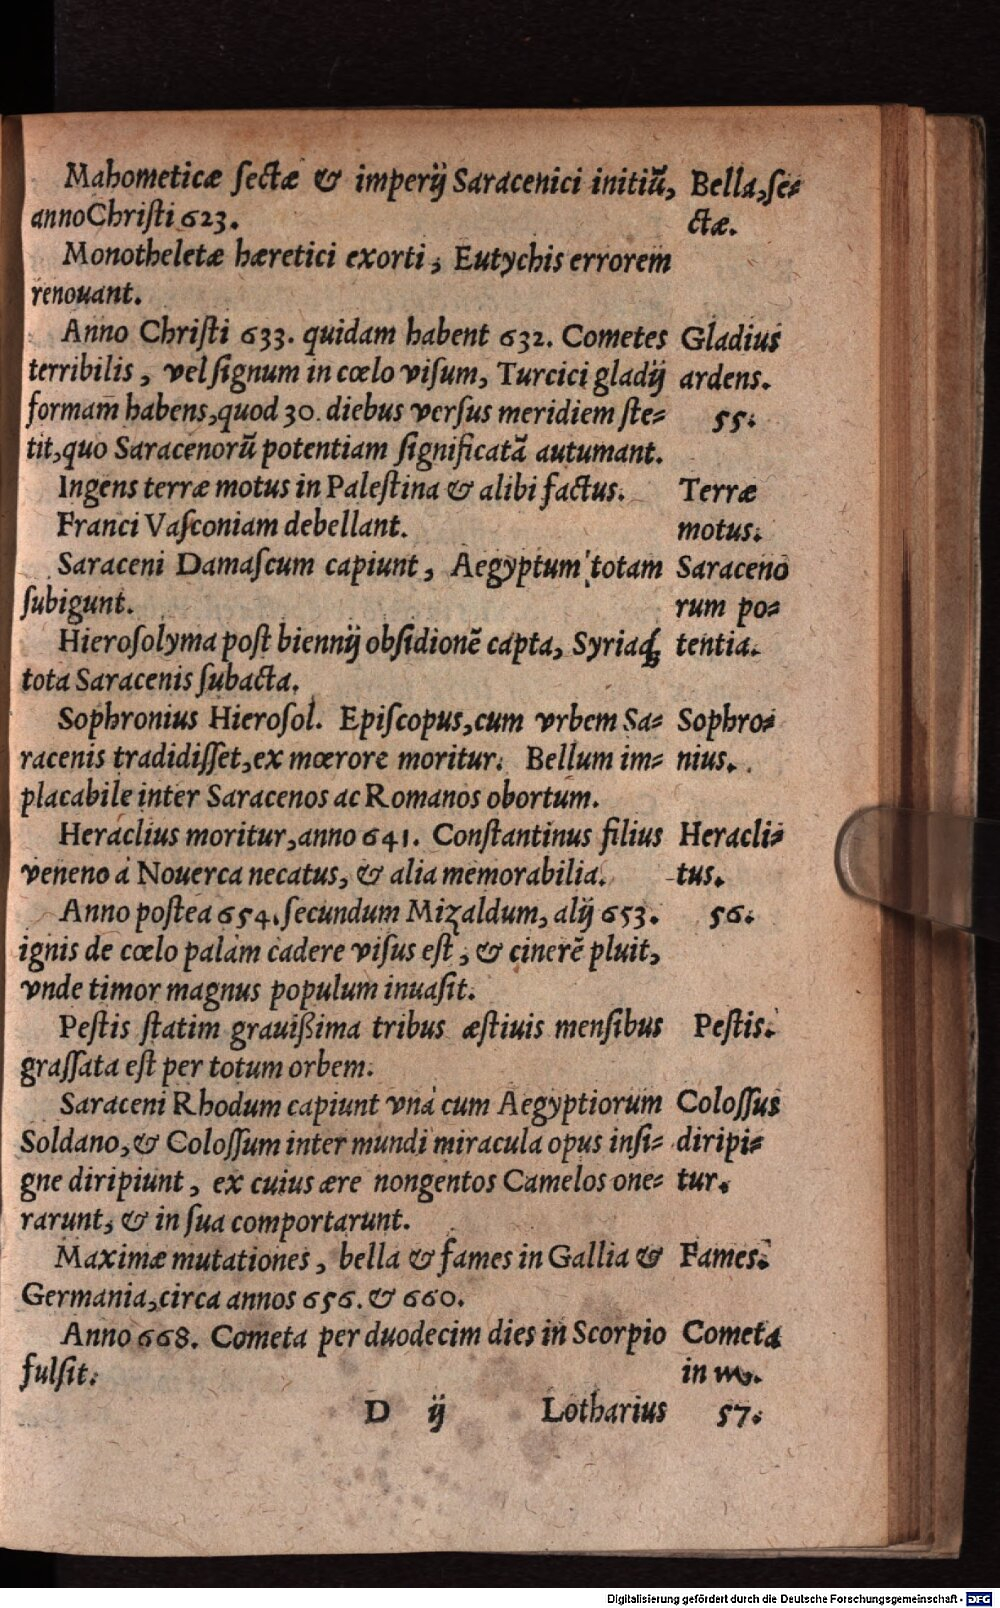 Mahometicæ ſectæ & imperij Saracenici initiũ, Bella,ſe-
anno Chriſti 623. ctæ.
Monotheletæ hæretici exorti, Eutychis errorem
renouant.
Anno Chriſti 633. quidam habent 632. Cometes Gladius
terribilis, vel ſignum in cœlo viſum, Turcici gladij ardens.
formam habens,quod 30. diebus verſus meridiem ſte- 55.
tit,quo Saracenorũ potentiam ſignificatã autumant.
Ingens terræ motus in Paleſtina & alibi factus. Terræ
Franci Vaſconiam debellant. motus.
Saraceni Damaſcum capiunt, Aegyptum totam Saraceno
ſubigunt. rum po-
Hieroſolyma poſt biennij obſidionẽ capta, Syriaq́ꝫ tentia.
tota Saracenis ſubacta.
Sophronius Hieroſol. Epiſcopus,cum vrbem Sa- Sophro-
racenis tradidiſſet,ex mœrore moritur. Bellum im- nius.
placabile inter Saracenos ac Romanos obortum.
Heraclius moritur,anno 641. Conſtantinus filius Heracli-
veneno à Nouerca necatus, & alia memorabilia. tus.
Anno poſtea 654. ſecundum Mizaldum, alij 653. 56.
ignis de cœlo palàm cadere viſus eſt, & cinerẽ pluit,
vnde timor magnus populum inuaſit.
Peſtis ſtatim grauißima tribus æſtiuis menſibus Peſtis.
graſſata eſt per totum orbem.
Saraceni Rhodum capiunt vnà cum Aegyptiorum Coloſſus
Soldano, & Coloſſum inter mundi miracula opus inſi- diripi-
gne diripiunt, ex cuius ære nongentos Camelos one- tur.
rarunt, & in ſua comportarunt.
Maximæ mutationes, bella & fames in Gallia & Fames.
Germania,circa annos 656. & 660.
Anno 668. Cometa per duodecim dies in Scorpio Cometa
fulſit. in ♏.
D ij Lotharius 57.
Digitalisierung gefördert durch die Deutsche Forschungsgemeinschaft - DFG